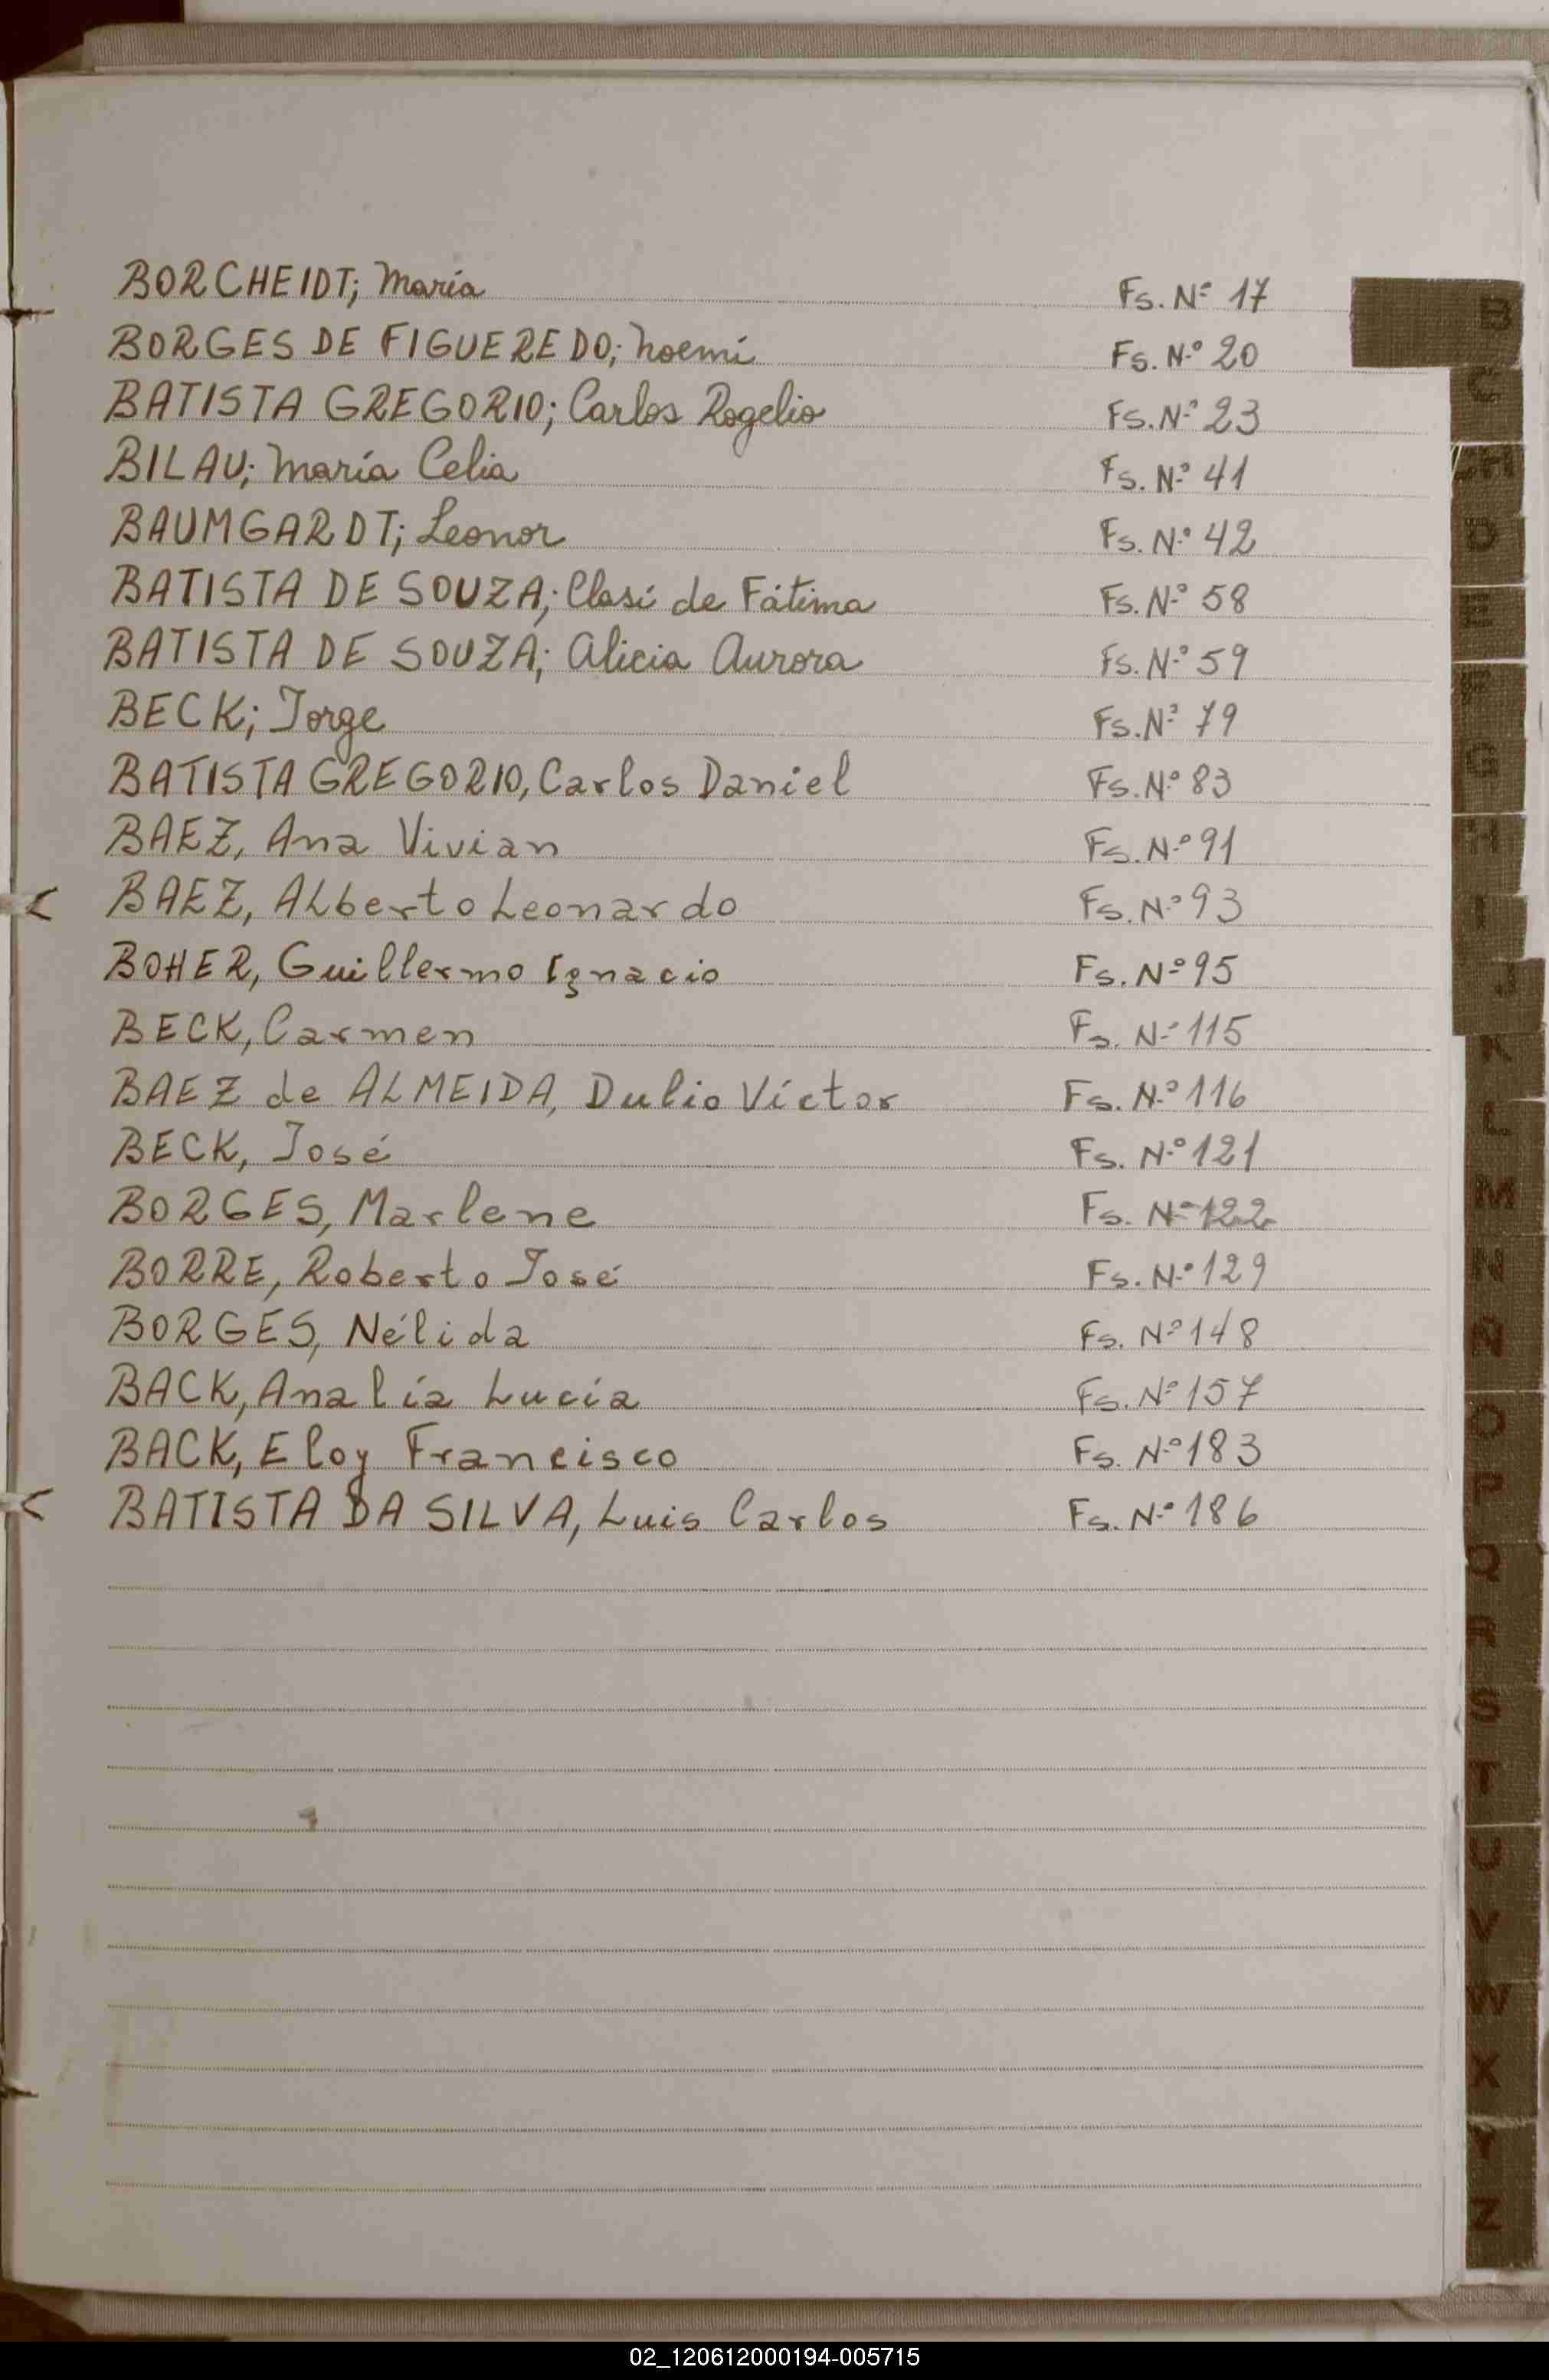 BORCHEIDT; María Fs. Nº 17
BORGES DE FIGUEREDO; Noemí Fs. Nº 20
BATISTA GREGORIO; Carlos Rogelio Fs. Nº 23
BILAU; María Celia Fs. Nº 41
BAUMGARDT; Leonor Fs. Nº 42
BATISTA DE SOUZA; Clasí de Fátima Fs. Nº 58
BATISTA DE SOUZA; Alicia Aurora Fs. Nº 59
BECK; Jorge Fs. Nº 79
BATISTA GREGORIO, Carlos Daniel Fs. Nº 83
BAEZ, Ana Vivian Fs. Nº 91
BAEZ, ALberto Leonardo Fs. Nº 93
BOHER, Guillermo Ignacio Fs. Nº 95
BECK, Carmen Fs. Nº 115
BAEZ de ALMEIDA, Dulio Víctor Fs. Nº 116
BECK, José Fs. Nº 121
BORGES, Marlene Fs. Nº 122
BORRE, Roberto José Fs. Nº 129
BORGES, Nélida Fs. Nº 148
BACK, Analía Lucía Fs. Nº 157
BACK, Eloy Francisco Fs. Nº 183
BATISTA DA SILVA, Luis Carlos Fs. Nº 186
B
C
CH
D
E
F
G
H
I
J
K
L
M
N
Ñ
O
P
Q
R
S
T
U
V
W
X
Y
Z
02_120612000194-005715